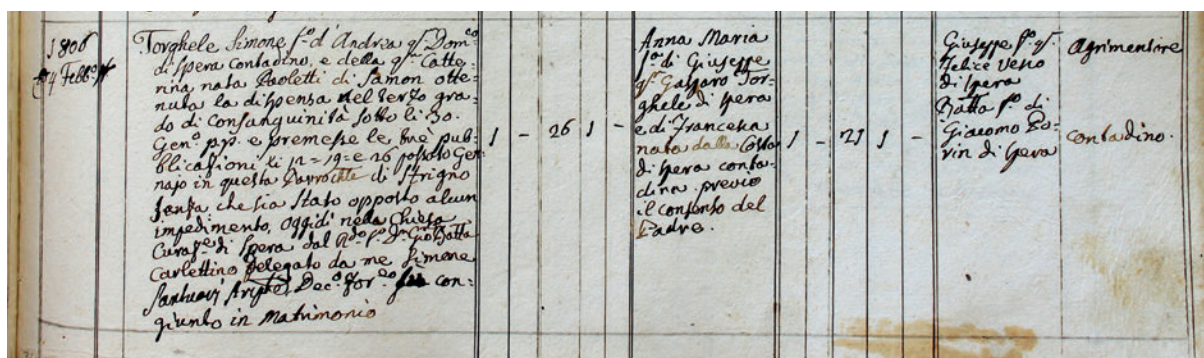 1806
4 Febb.o
Torghele Simone f.o d'Andrea q.m Dom.co
di Spera contadino, e della q.m Catte-
rina nata Paoletti di Samon otte-
nuta la dispensa nel terzo gra-
do di Consanguinità sotto li 30.
Gen.o p.p. e premesse le trè pub-
blicazioni li 12 = 19 = e 26 passato Gen-
najo in questa Parrochle di Strigno
senza che sia stato opposto alcun
impedimento, oggidì nella Chiesa
di Spera dal R.do S.r D.n Gio Batta
Carlettino delegato da me Simone
Dec.o For.eo con-
giunto in Matrimonio
1 - 26 1 -
Anna Maria
f.a di Giuseppe
q.m Gasparo Tor-
ghele di Spera
e di Francesca
nata dalla Costa
di Spera conta-
dina previo
il consenso del
Padre.
1 - 21 1 -
Giuseppe f.o q.m
Felice Vesco
di Spera
Batta f.o di
Giacomo Pu-
rin di Spera
Agrimensore
Contadino.